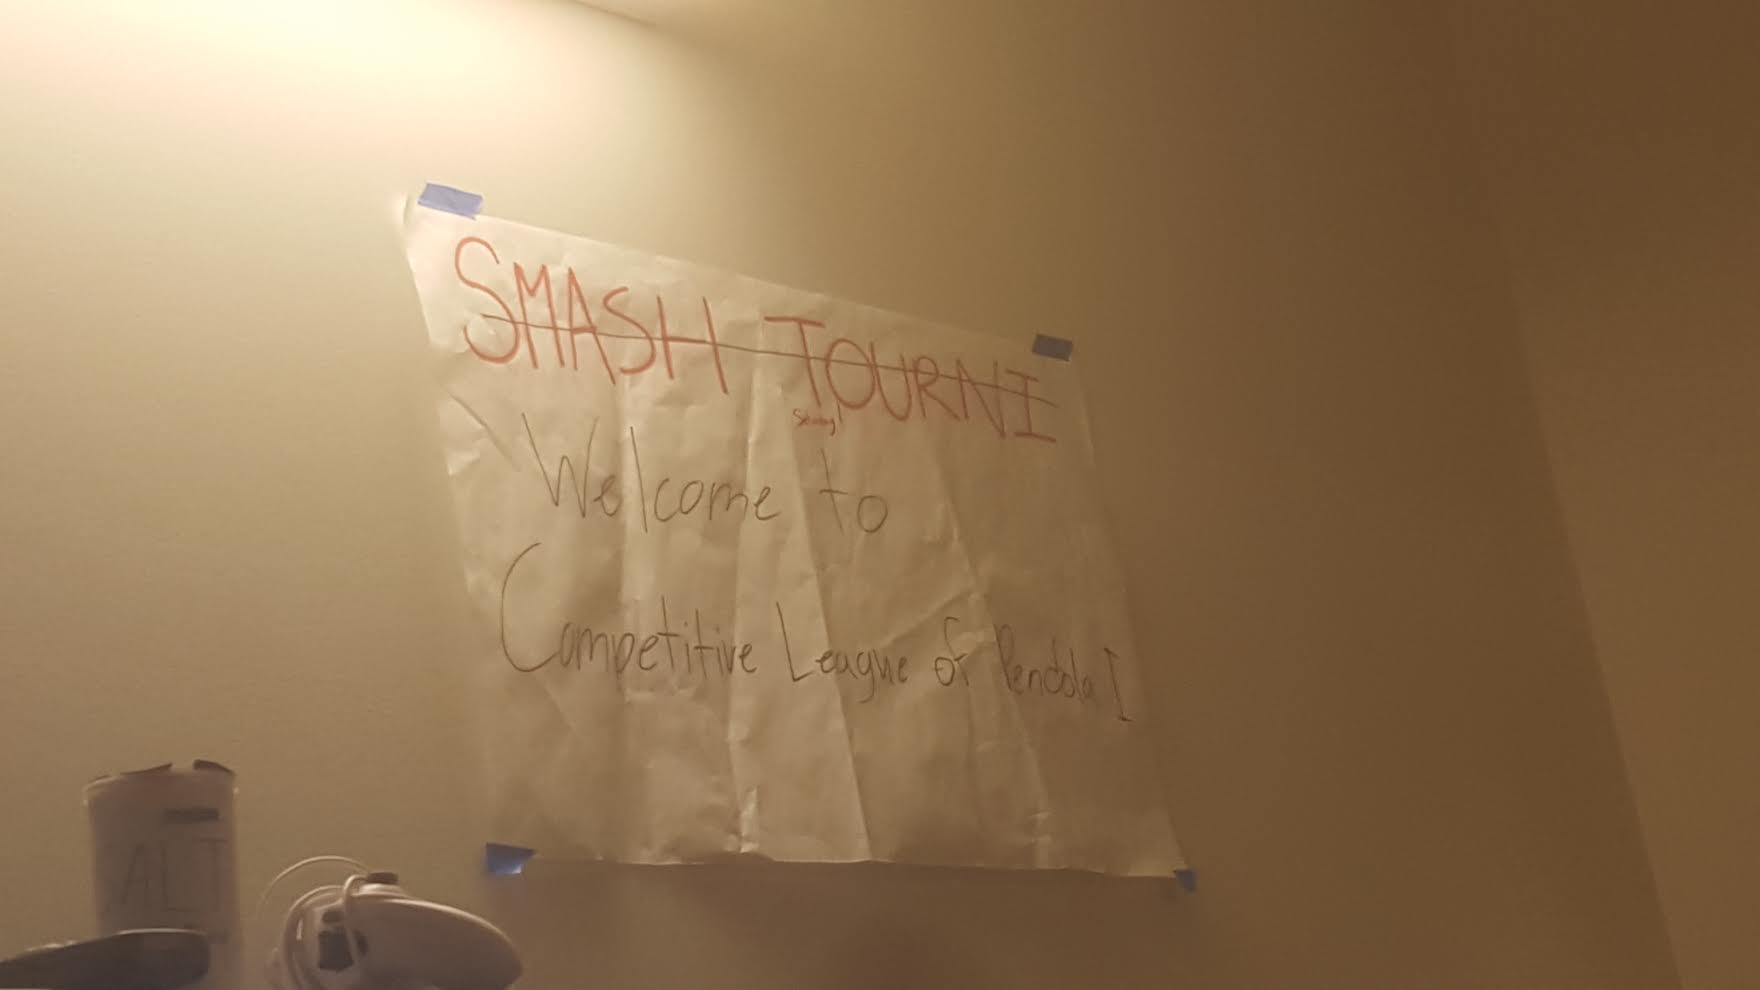 SMASH TOURNI
Welcome to
Competitive League of Pendola I
ALT